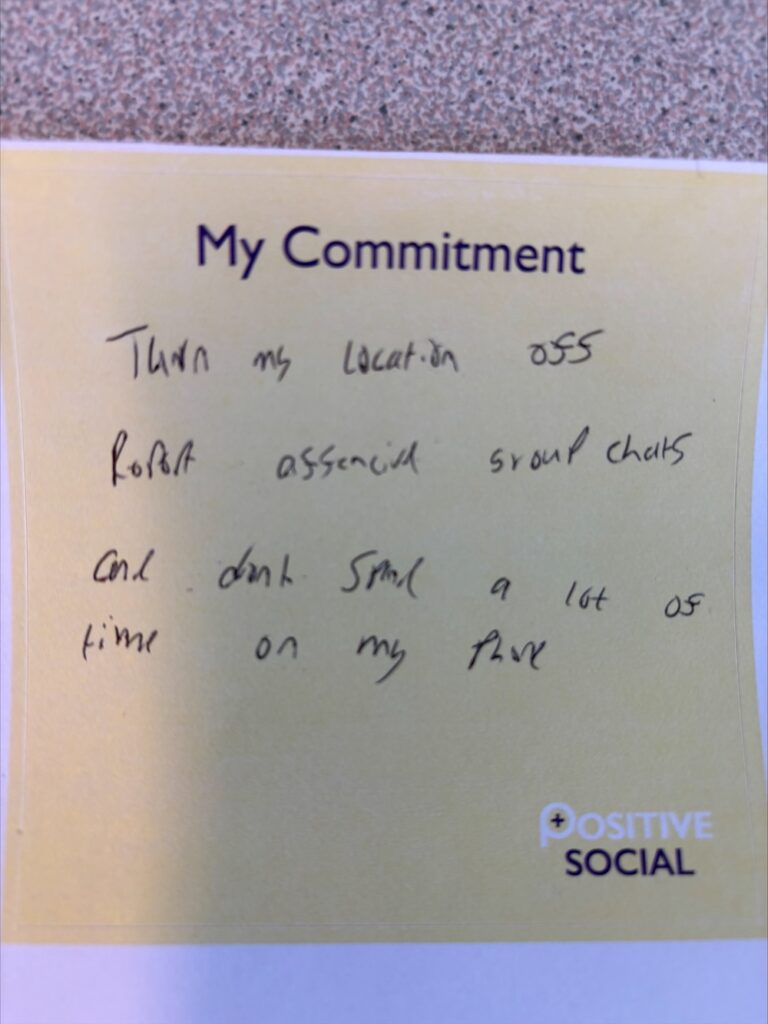 My Commitment
Turn my Location off
Report assencive group chats
and dont Spend a lot of
time on my Phone
POSITIVE
SOCIAL